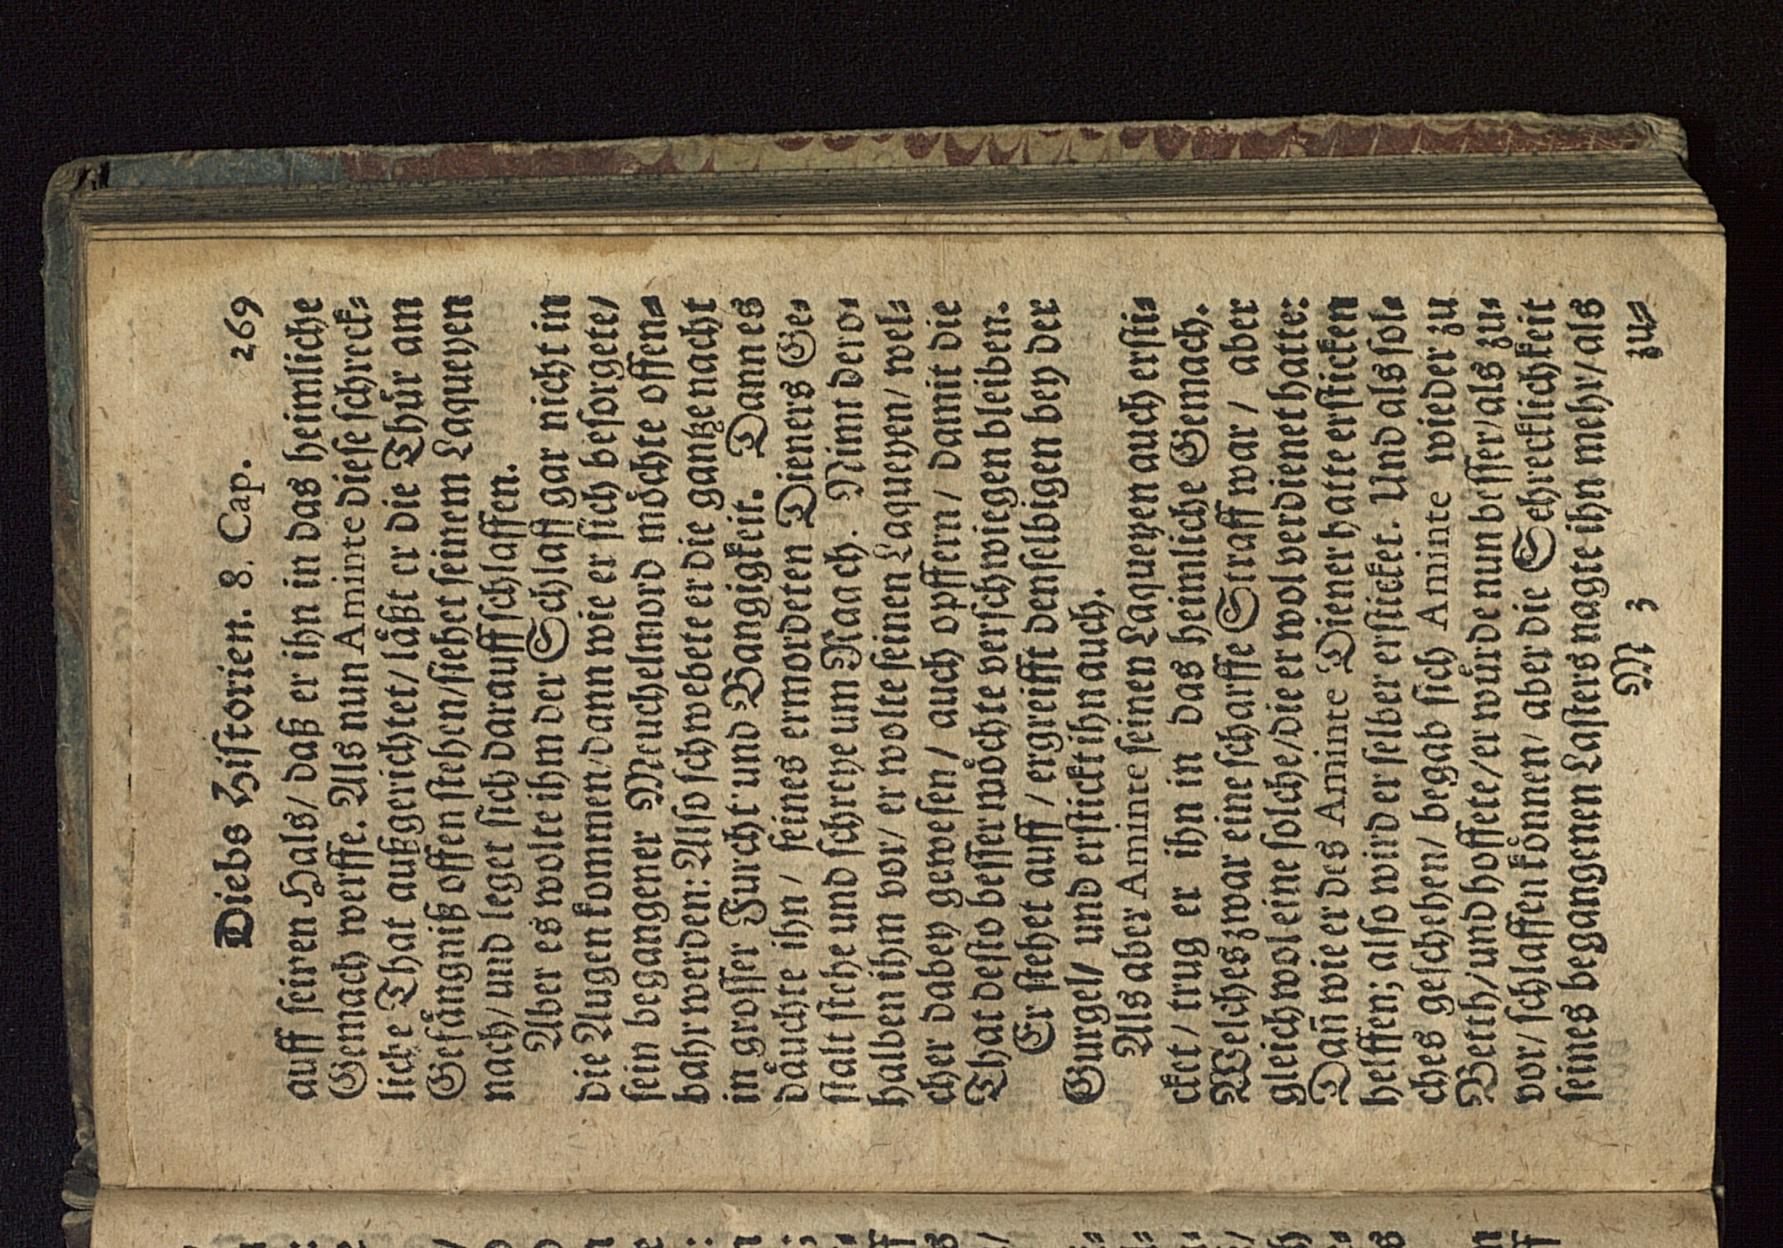 Diebs Historien. 8. Cap. 269
auff seiren Hals/ daß er ihn in das heimliche
Gemach werffe. Als nun Aminte diese schreck⸗
liche That außgerichtet/ läßt er die Thür am
Gefängniß offen stehen/siehet seinem Laqueyen
nach/ und leget sich darauff schlaffen.
Aber es wolte ihm der Schlaff gar nicht in
die Augen kommen/dann wie er sich besorgete/
sein begangener Meuchelmord möchte offen⸗
bahr werden: Also schwebete er die gantze nacht
in grosser Furcht und Bangigkeit. Dann es
däuchte ihn/ seines ermordeten Dieners Ge⸗
stalt stehe und schreye um Raach. Nimt dero⸗
halben ihm vor/ er wolte seinen Laqueyen/ wel⸗
cher dabey gewesen/ auch opffern/ damit die
That desto besser möchte verschwiegen bleiben.
Er stehet auff/ ergreifft denselbigen bey der
Gurgel/ und erstickt ihn auch.
Als aber Aminte seinen Laqueyen auch ersti⸗
cket/ trug er ihn in das heimliche Gemach.
Welches zwar eine scharffe Straff war/ aber
gleichwol eine solche/die er wol verdienet hatte:
Dañ wie er des Aminte Diener hatte ersticken
helffen; also wird er selber ersticket. Und als sol⸗
ches geschehen/ begab sich Aminte wieder zu
Betth/und hoffete/er würde nun besser/als zu⸗
vor/ schlaffen können/ aber die Schrecklichkeit
seines begangenen Lasters nagte ihn mehr/als
M 3 zu⸗